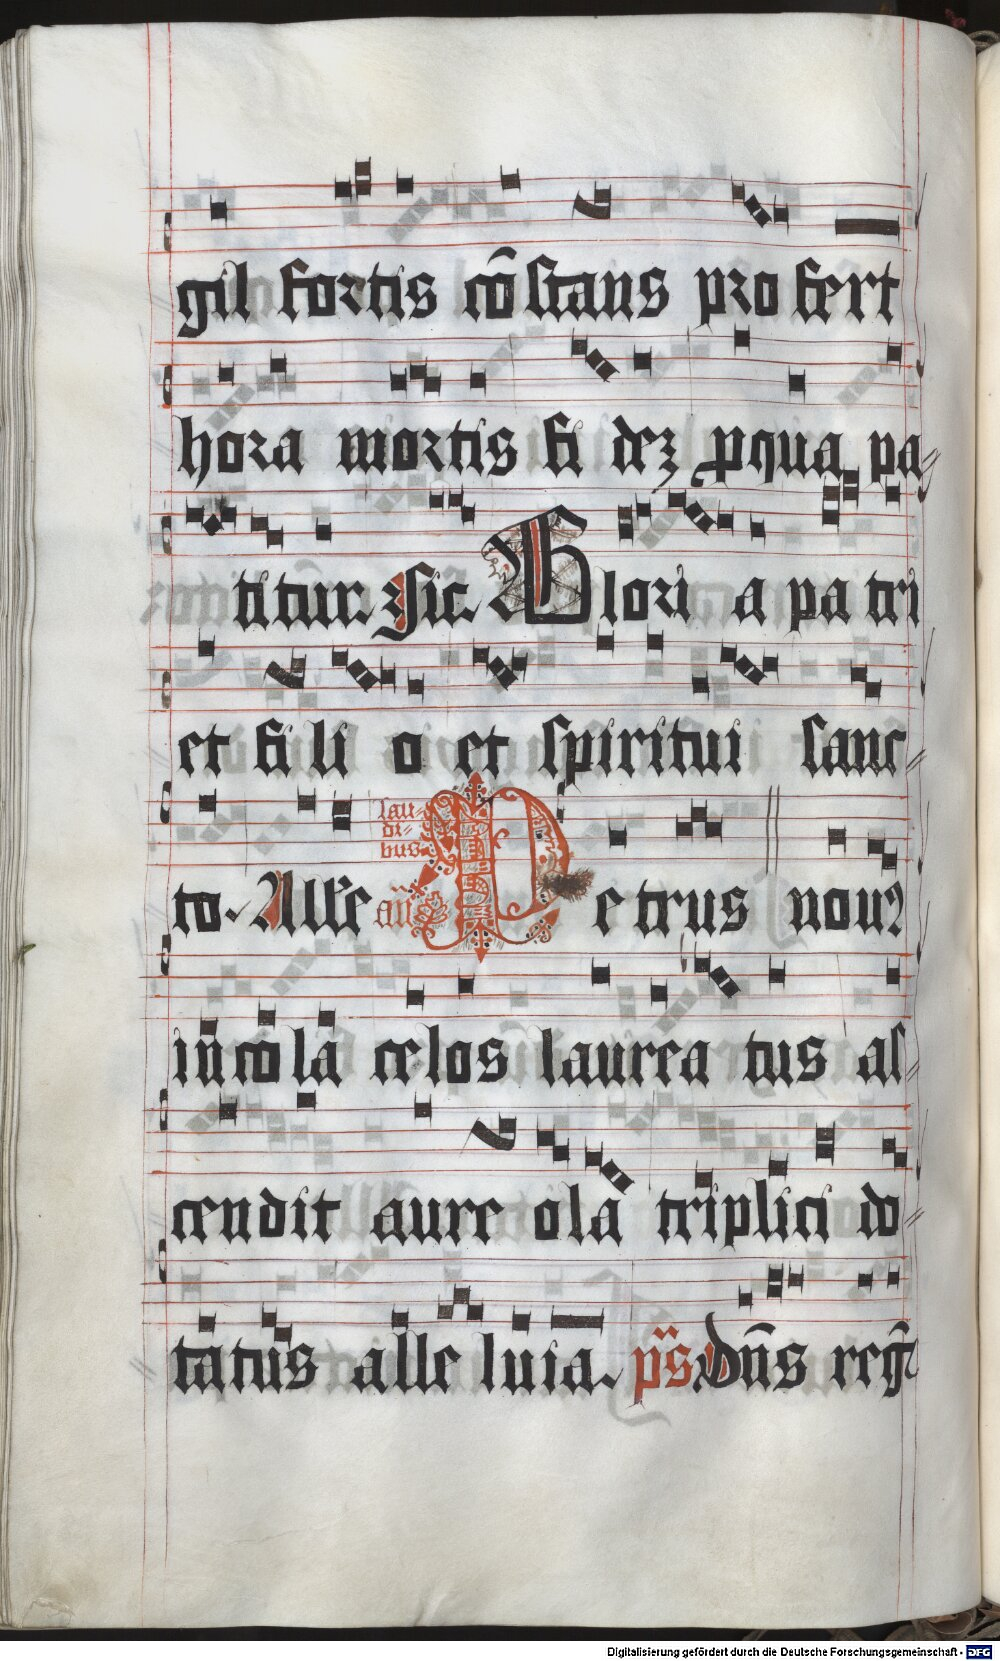 gil fortis cōstans pro fert
hora mortis fi dez ꝓ qua pa
titur. Sic. Glori a pa tri
et fi li o et spiritui sanc
to. Alle
lau-
di-
bus
an̄ Petrus nouꝰ
incola celos laurea tus as
cendit aure olā triplici do
tatus alle luia. ps̄ Dn̄s reḡ
Digitalisierung gefördert durch die Deutsche Forschungsgemeinschaft - DFG